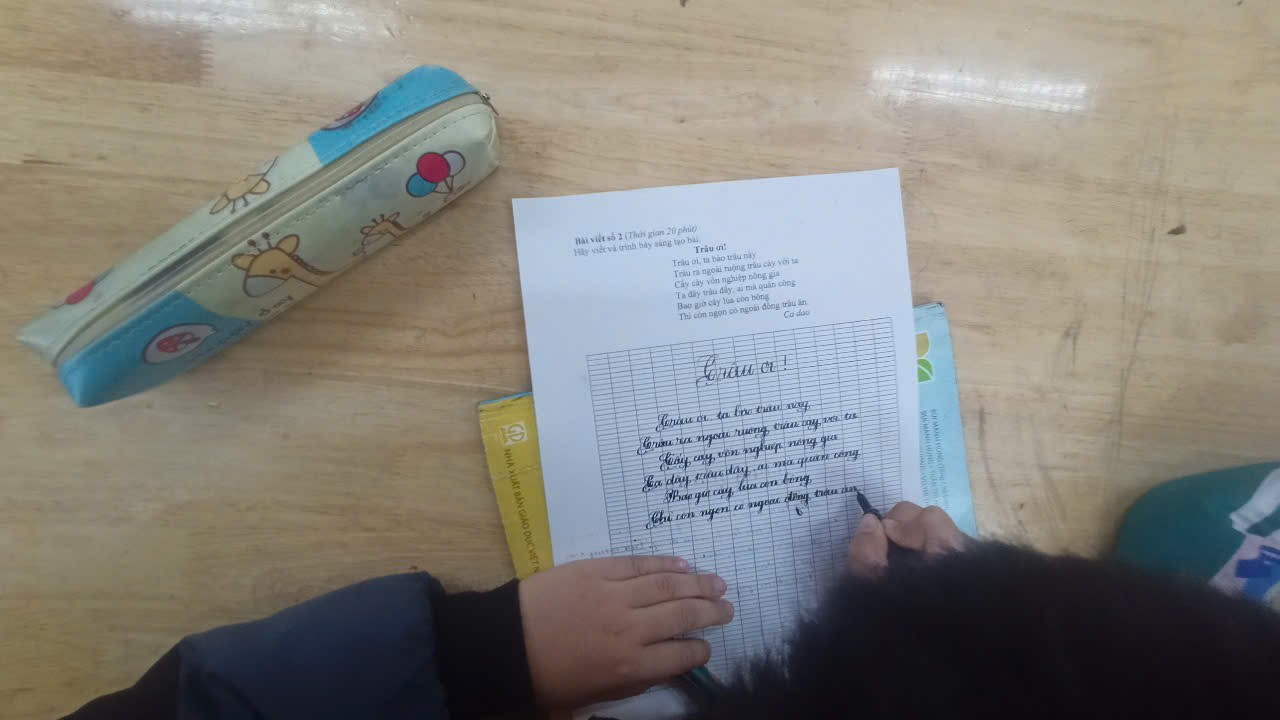 Bài viết số 2 (Thời gian 20 phút)
Hãy viết và trình bày sáng tạo bài.
Trâu ơi!
Trâu ơi, ta bảo trâu này
Trâu ra ngoài ruộng trâu cày với ta
Cấy cày vốn nghiệp nông gia
Ta đây trâu đấy, ai mà quản công
Bao giờ cây lúa còn bông
Thì còn ngọn cỏ ngoài đồng trâu ăn.
Ca dao
Trâu ơi!
Trâu ơi, ta bảo trâu này,
Trâu ra ngoài ruộng, trâu cày với ta
Cấy cày vốn nghiệp nông gia
Ta đây trâu đấy, ai mà quản công
Bao giờ cây lúa còn bông,
Thì còn ngọn cỏ ngoài đồng trâu ăn
NHÀ XUẤT BẢN GIÁO DỤC VIỆT N
BÙI MẠNH HÙNG